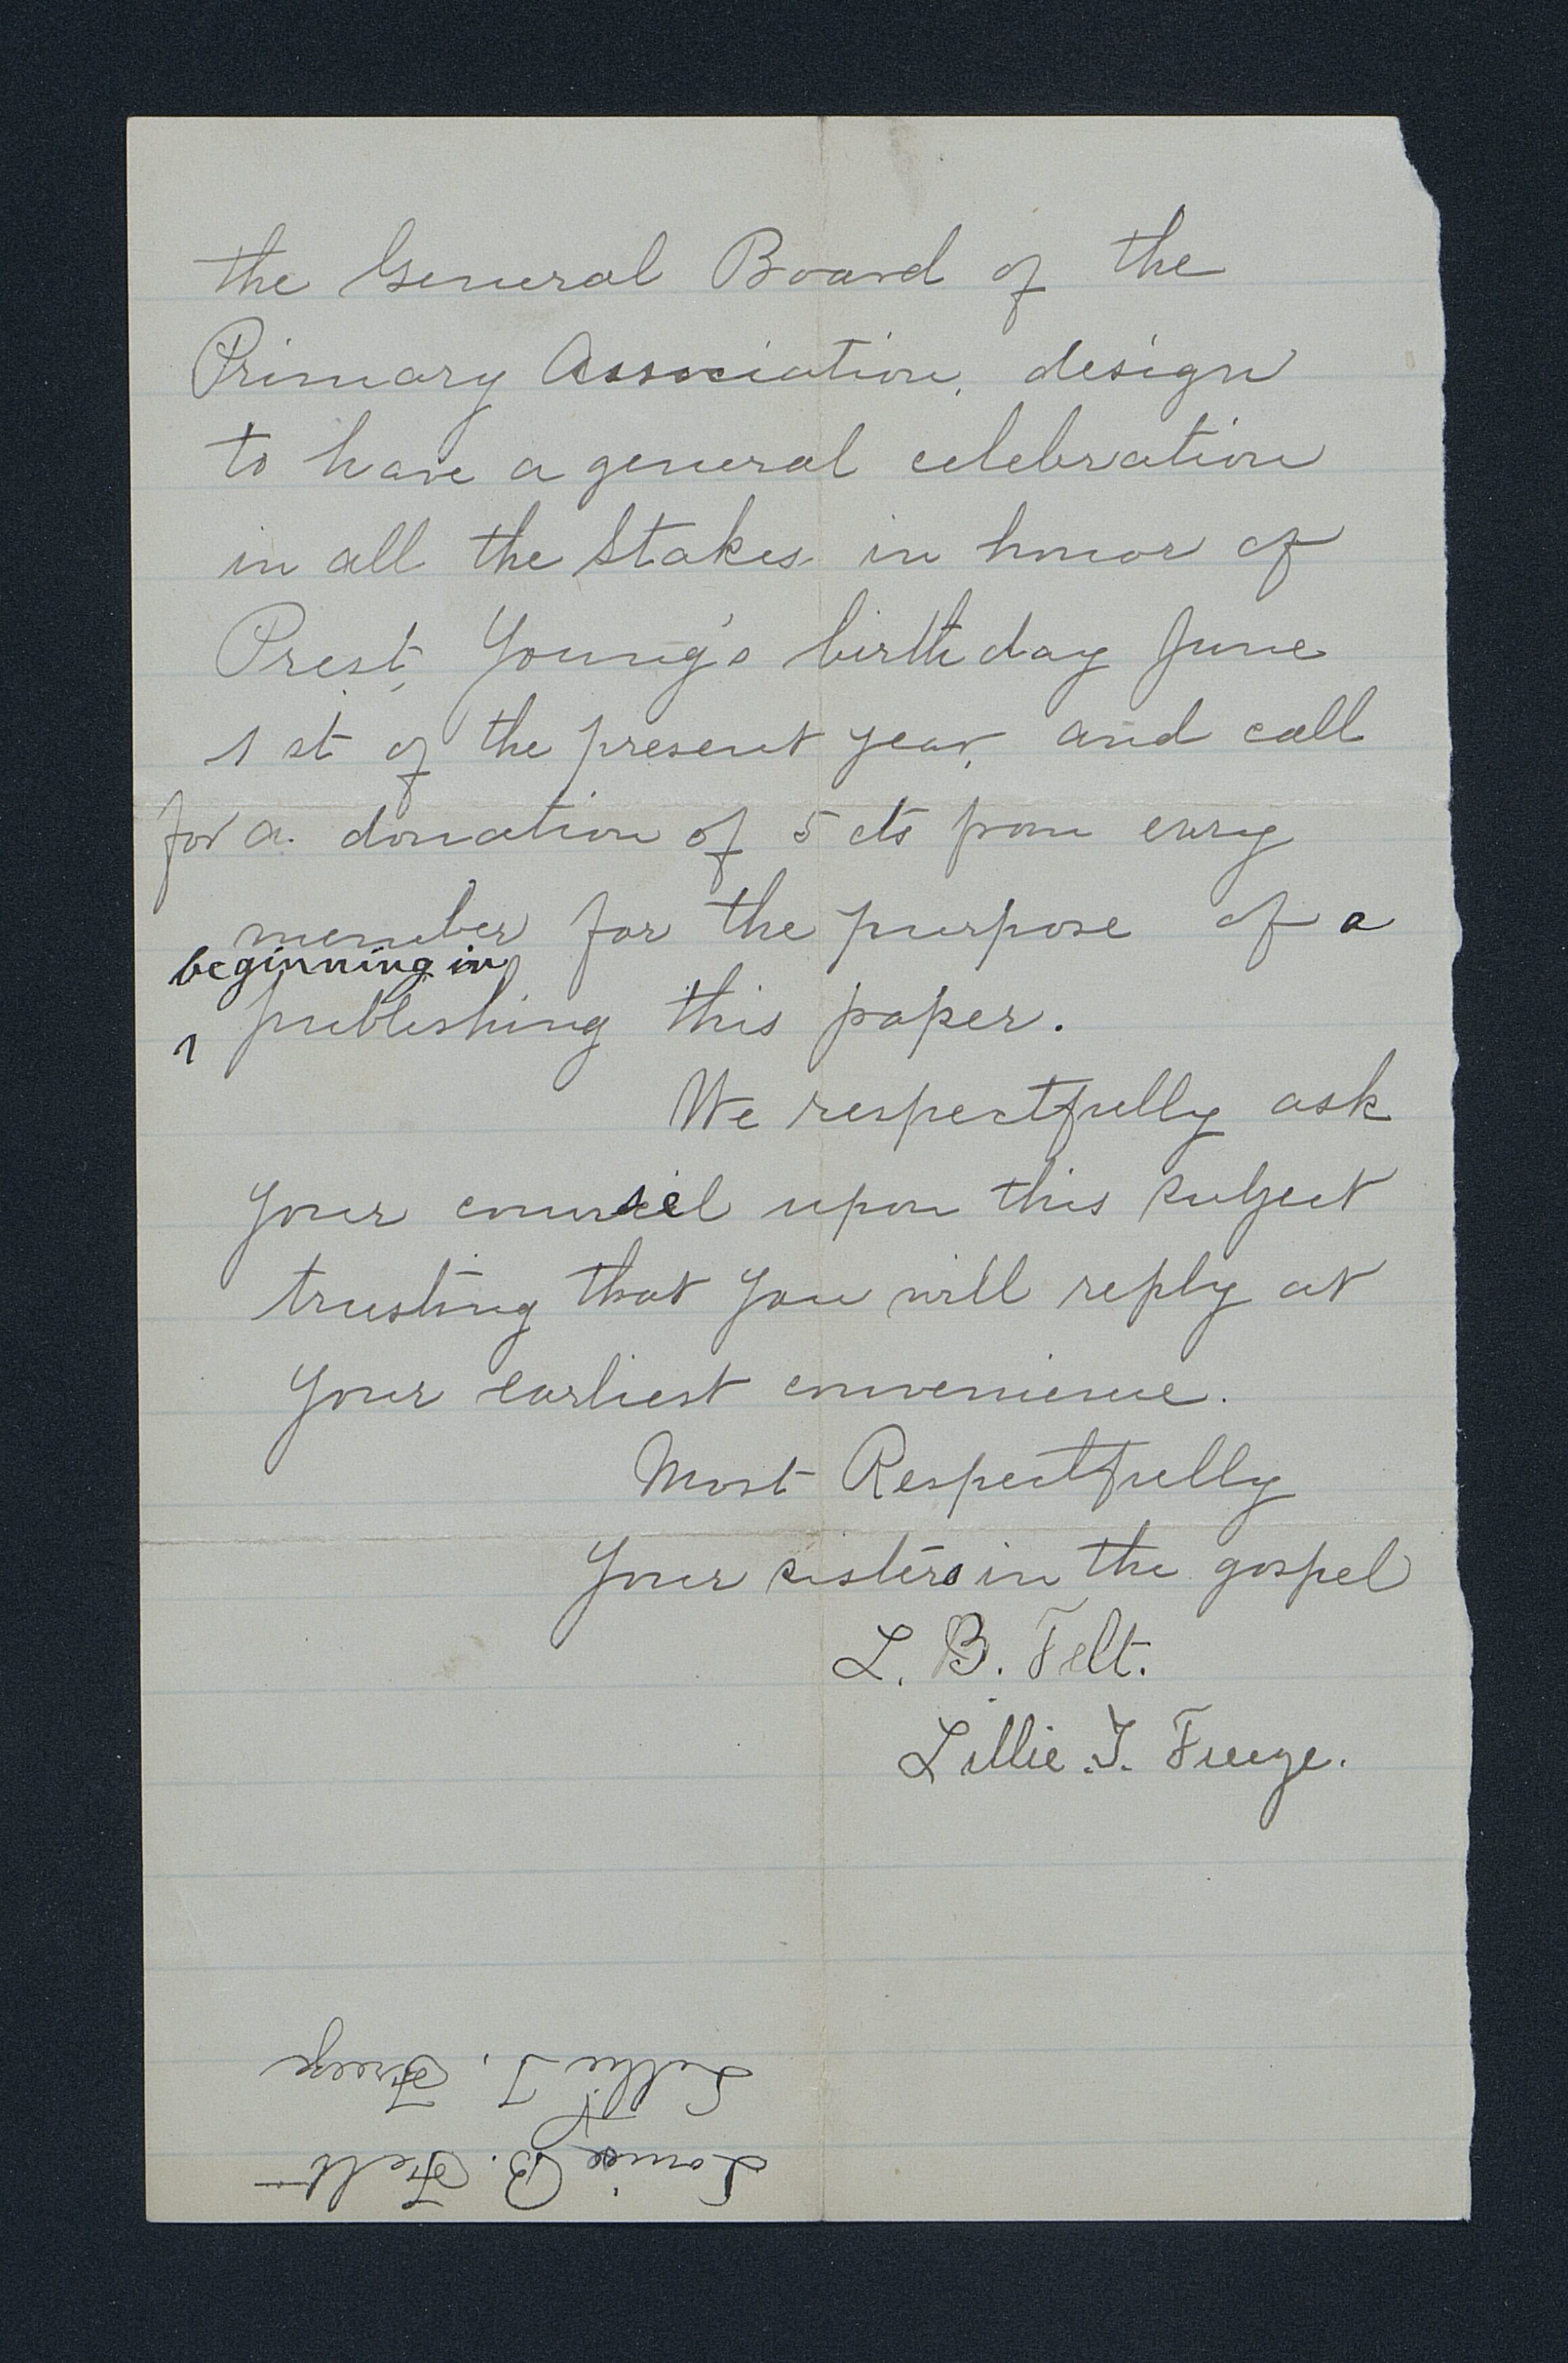 the General Board of the
Primary Association, design
to have a general celebration
in all the Stakes in honor of
Prest, Young's birthday June
1st of the present year, and call
for a donation of 5 cts from every
member for the purpose of a
beginning in
^ publishing this paper.
We respectfully ask
your counsel upon this subject
trusting that you will reply at
your earliest convenience.
Most Respectfully
Your sisters in the gospel
L. B. Felt.
Lillie T. Freeze.
Louie B. Felt
Lillie T. Freeze